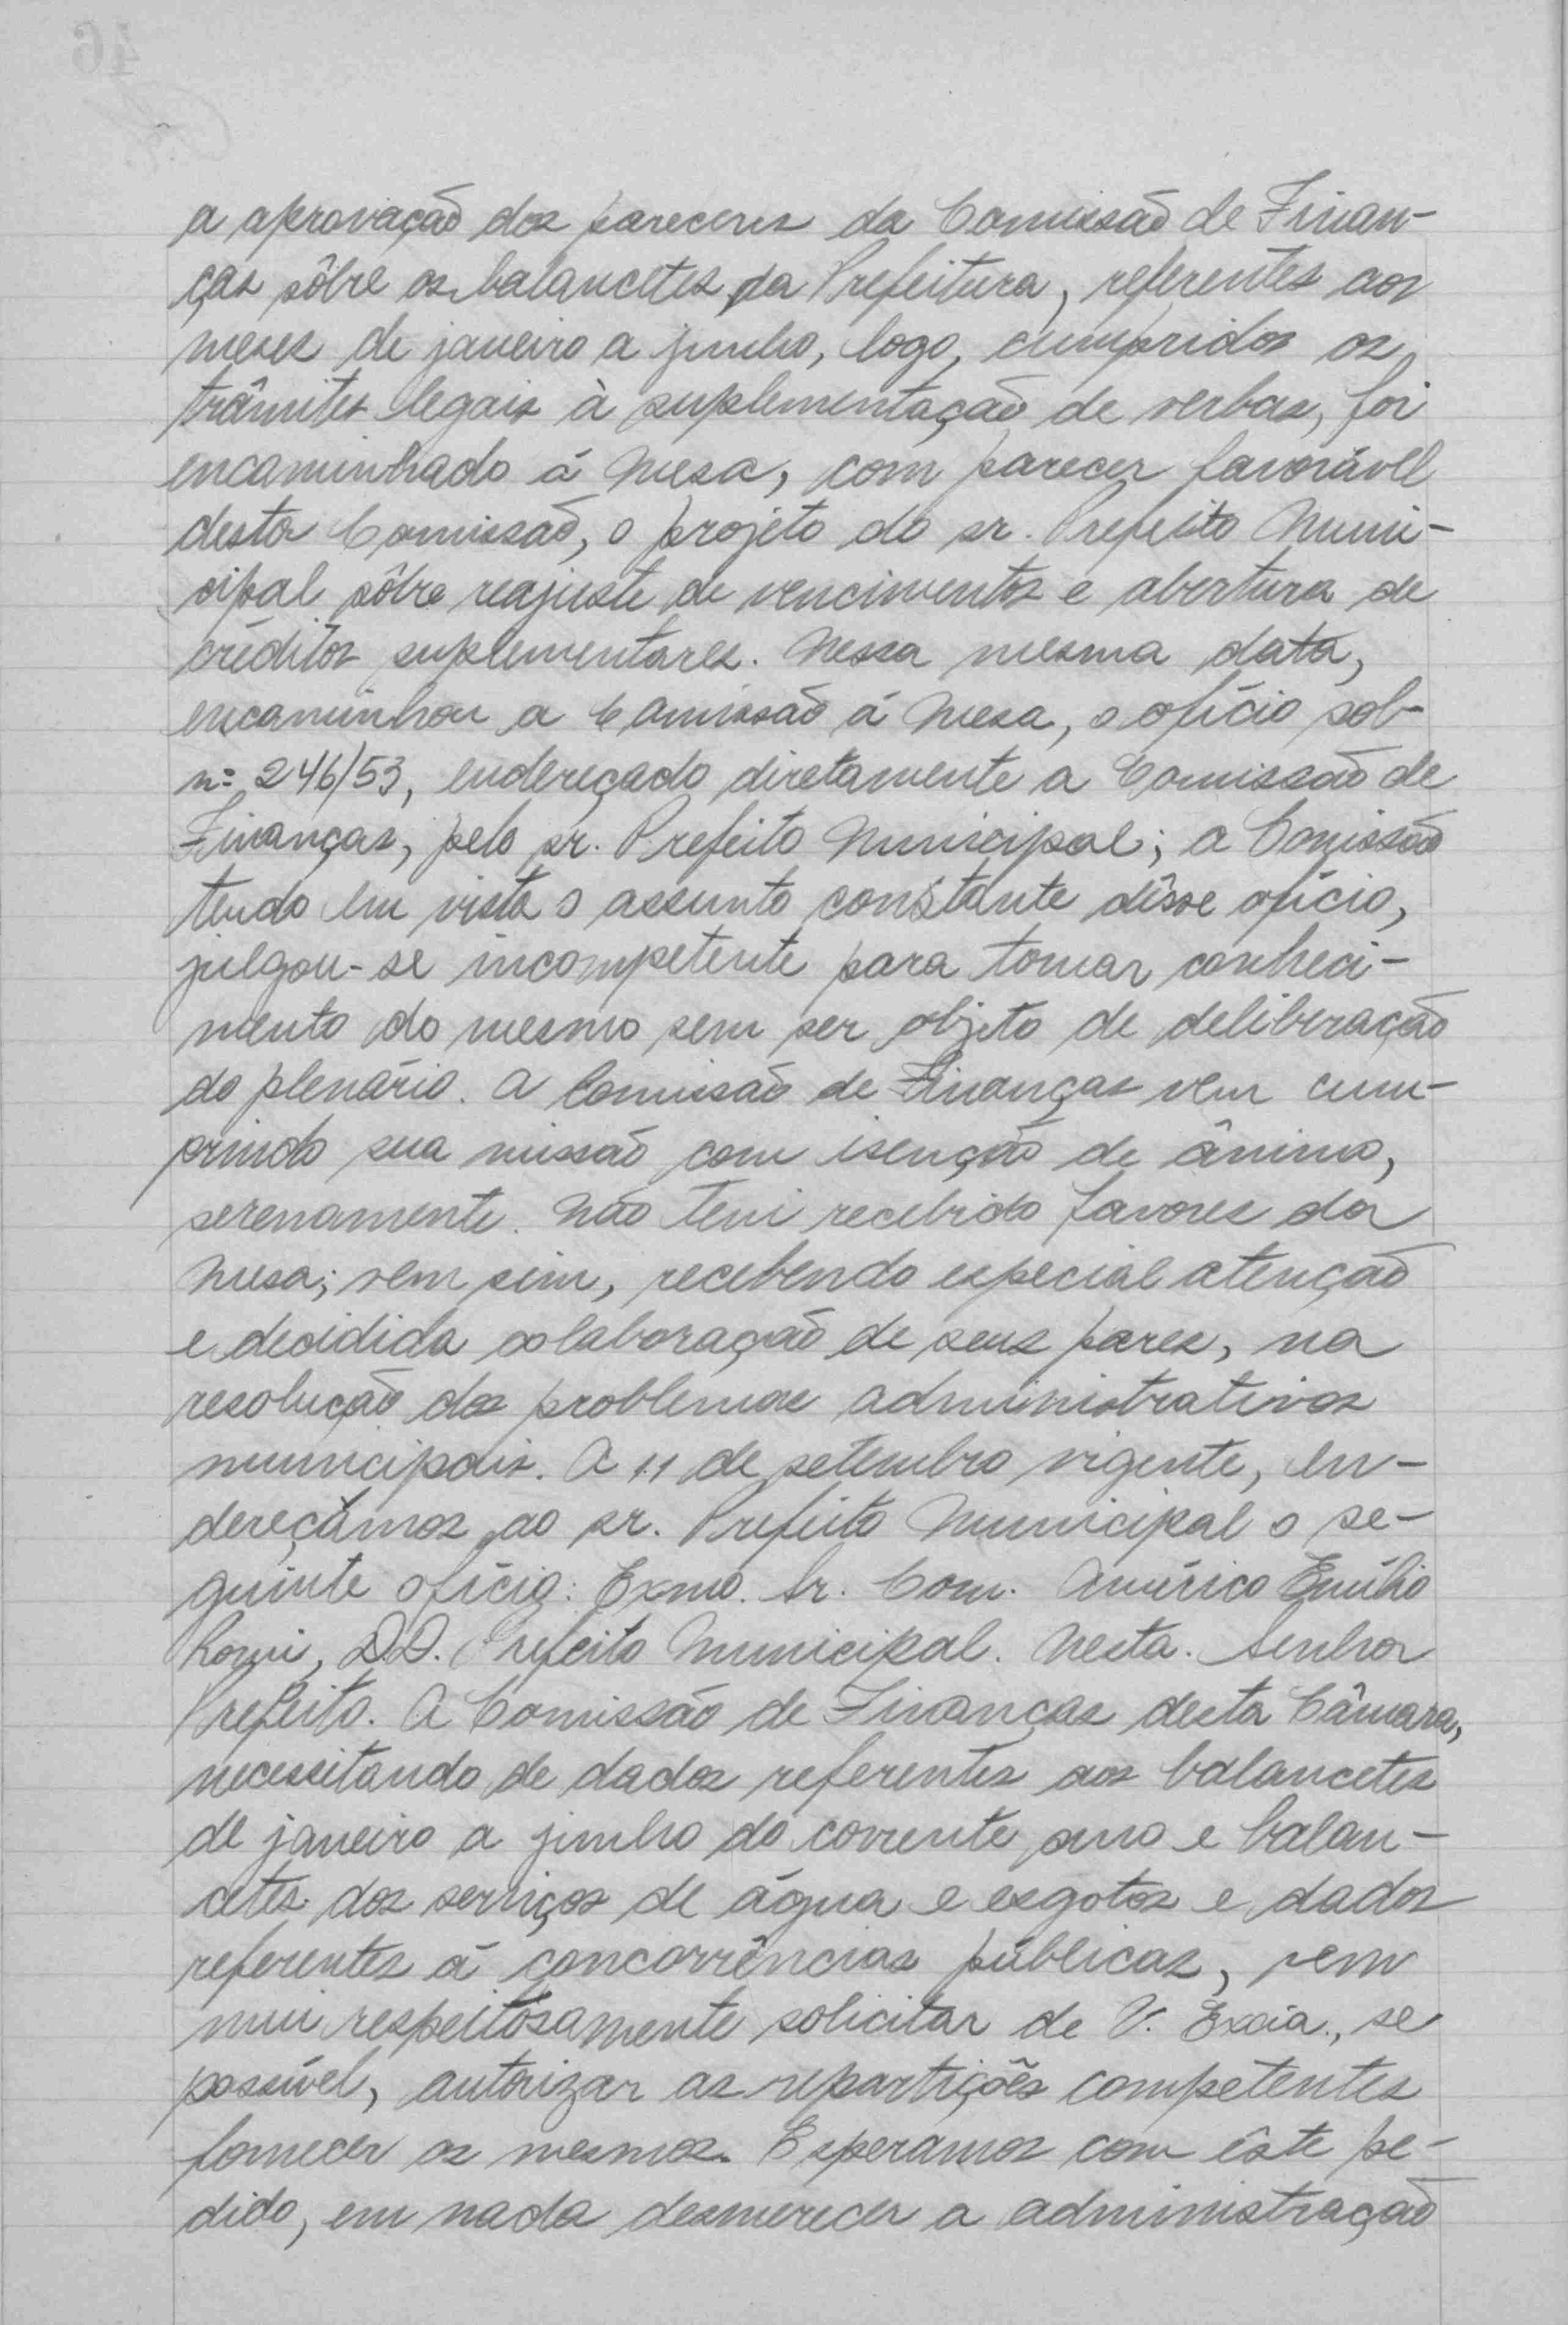 a aprovação dos pareceres da Comissão de Finan-
ças sôbre os balancetes da Prefeitura, referentes aos
meses de janeiro a junho, logo, cumpridos os
trâmites legais à suplementação de verbas, foi
encaminhado á Mesa, com parecer favorável
desta Comissão, o projeto do sr. Prefeito Muni-
cipal sôbre reajuste de vencimentos e abertura de
créditos suplementares. Nessa mesma data,
encaminhou a Comissão á Mesa, o ofício sob-
nº 246/53, endereçado diretamente a Comissão de
Finanças, pelo sr. Prefeito Municipal; a Comissão
tendo em vista o assunto constante dêsse ofício,
julgou-se incompetente para tomar conheci-
mento do mesmo sem ser objeto de deliberação
do plenário. A Comissão de Finanças vem cum-
prindo sua missão com isenção de ânimo,
serenamente. Não tem recebido favores da
Mesa; vem sim, recebendo especial atenção
e decidida colaboração de seus pares, na
resolução dos problemas administrativos
municipais. A 11 de setembro vigente, en-
dereçâmos ao sr. Prefeito Municipal o se-
guinte ofício: Exmo. Sr. Com. Américo Emílio
Romi, DD. Prefeito Municipal. Nesta. Senhor
Prefeito. A Comissão de Finanças desta Câmara,
necessitando de dados referentes aos balancetes
de janeiro a junho do corrente ano e balan-
cetes dos serviços de água e esgotos e dados
referentes á concorrências públicas, vem
mui respeitosamente solicitar de V. Excia., se
possível, autorizar as repartições competentes
fornecer os mesmos. Esperamos com êste pe-
dido, em nada desmerecer a administração